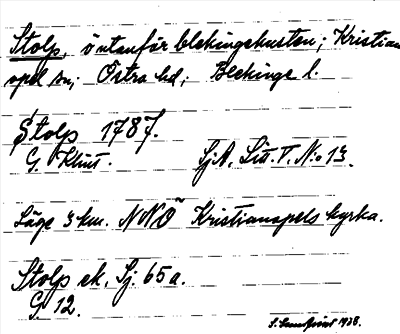 Stolp, ö utanför blekingekusten; Kristian
opel sn; Östra hd; Blekinge l.
Stolp 1787.
G. Klint. SjA. Litt. V. No 13.
Läge 3 km. NNÖ Kristianopels kyrka.
Stolp ek. Sj. 65a.
G 12.
S. Sundqvist 1938.